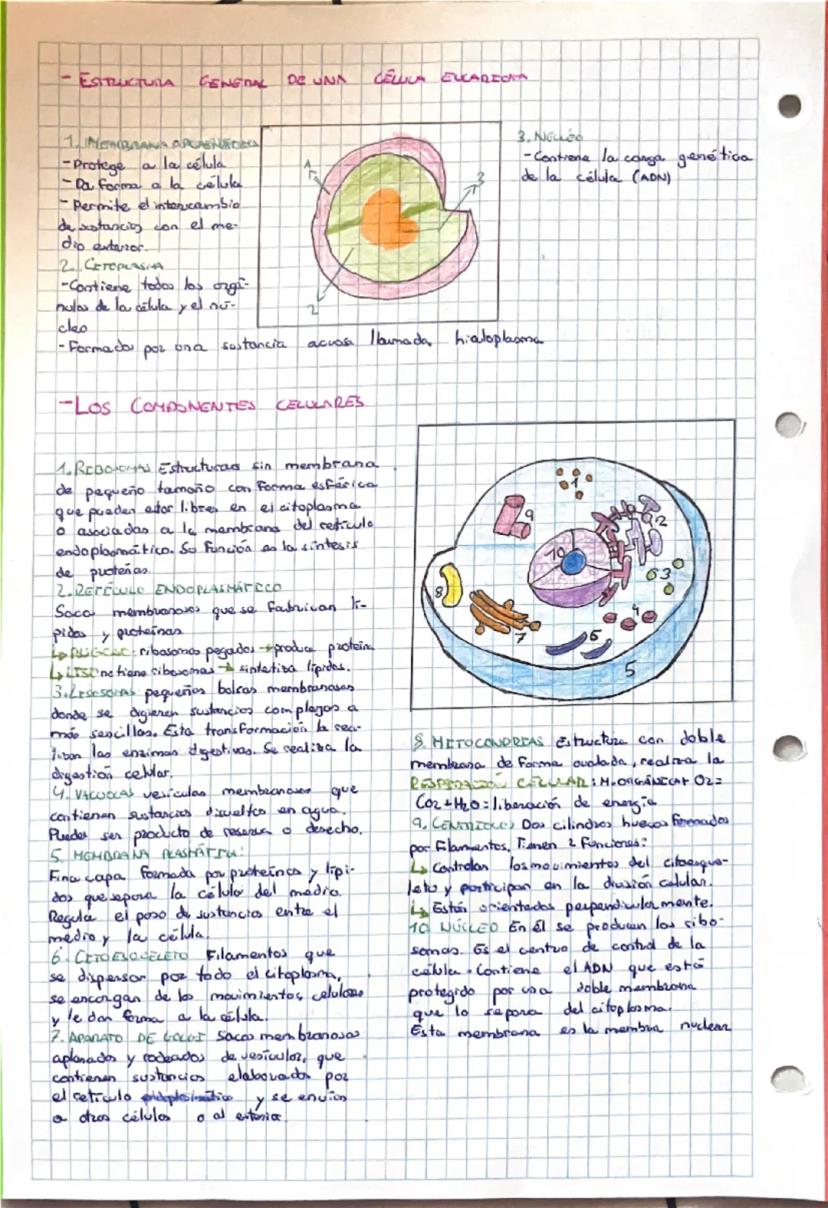 - ESTRUCTURA GENERAL DE UNA CÉLULA EUCARIOTA
1. MEMBRANA
- Protege a la célula
- Da forma a la célula
- Permite el intercambio
de sustancias con el me-
dio exterior.
2. CITOPLASMA
- Contiene todos los orgá-
nulos de la célula y el nú-
cleo
- Formado por una sustancia acuosa llamada hialoplasma
1
2
3
3. NÚCLEO
- Contiene la carga genética
de la célula (ADN)
- LOS COMPONENTES CELULARES
1. Estructuras sin membrana
de pequeño tamaño con forma esférica
que pueden estar libres en el citoplasma
o asociadas a la membrana del retículo
endoplasmático. Su función es la síntesis
de proteínas.
2. RETÍCULO ENDOPLASMÁTICO
Sacos membranosos que se fabrican lí-
pidos y proteínas
↳ RUGOSO: ribosomas pegados → produce proteína
↳ LISO no tiene ribosomas → sintetiza lípidos.
3. LISOSOMAS pequeñas bolsas membranosas
donde se digieren sustancias complejas a
más sencillas. Esta transformación la rea-
lizan las enzimas digestivas. Se realiza la
digestión celular.
4. VACUOLAS vesículas membranosas que
contienen sustancias disueltas en agua.
Puedes ser producto de reserva o desecho.
5. MEMBRANA PLASMÁTICA:
Fina capa formada por proteínas y lípi-
dos que separa la célula del medio.
Regula el paso de sustancias entre el
medio y la célula.
6. CITOESQUELETO Filamentos que
se dispersan por todo el citoplasma,
se encargan de los movimientos celulares
y le dan forma a la célula.
7. APARATO DE GOLGI Sacos membranosos
aplanados y rodeados de vesículas, que
contienen sustancias elaboradas por
el retículo y se envían
a otras células o al exterior
1
2
3
4
5
6
7
8
9
10
8. MITOCONDRIAS Estructura con doble
membrana de forma ovalada, realiza la
RESPIRACIÓN CELULAR: M.ORGÁNICA+ O2=
CO2+H2O=liberación de energía
9. CENTRIOLOS Dos cilindros huecos formados
por filamentos. Tienen 2 funciones:
↳ Controlan los movimientos del citoesque-
leto y participan en la división celular.
↳ Están orientados perpendicularmente.
10. NÚCLEO En él se producen los ribo-
somas. Es el centro de control de la
célula. Contiene el ADN que está
protegido por una doble membrana
que lo separa del citoplasma.
Esta membrana es la membra nuclear